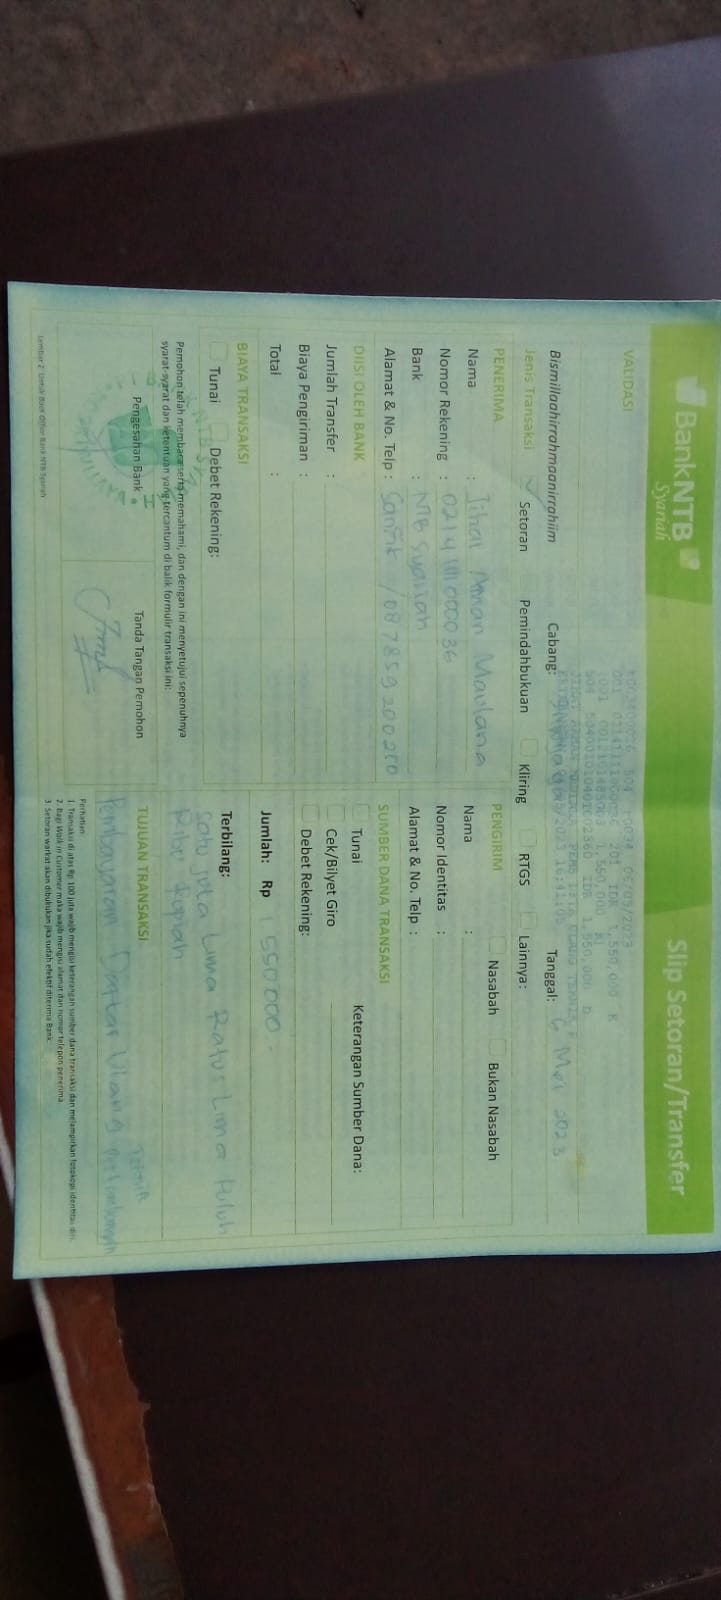 BankNTB
Syariah
Slip Setoran/Transfer
VALIDASI
504 06/05/2023
201 IDR 1,550,000 K
Bismillaahirrahmaanirrahiim
Cabang:
Tanggal: 6 Mei 2023
Jenis Transaksi Setoran Pemindahbukuan Kliring RTGS Lainnya:
PENERIMA
Nama :
Maulana
Nomor Rekening :
Bank : NTB Syariah
Alamat & No. Telp : / 087859200200
PENGIRIM Nasabah Bukan Nasabah
Nama :
Nomor Identitas :
Alamat & No. Telp :
DIISI OLEH BANK
Jumlah Transfer :
Biaya Pengiriman :
Total :
SUMBER DANA TRANSAKSI
Tunai Keterangan Sumber Dana:
Cek/Bilyet Giro
Debet Rekening:
BIAYA TRANSAKSI
Tunai Debet Rekening:
Jumlah: Rp 1 550 000.-
Terbilang:
satu juta Lima Ratus Lima Puluh
Ribu Rupiah
Pemohon telah membaca serta memahami, dan dengan ini menyetujui sepenuhnya
syarat-syarat dan ketentuan yang tercantum di balik formulir transaksi ini:
Pengesahan Bank
Tanda Tangan Pemohon
TUJUAN TRANSAKSI
Teknik
Pembayaran Daftar Ulang
Perhatian:
1. Transaksi di atas Rp 100 juta wajib mengisi keterangan sumber dana transaksi dan melampirkan fotokopi identitas diri.
2. Bagi Walk in Customer maka wajib mengisi alamat dan nomor telepon penerima.
3. Setoran warkat akan dibukukan jika sudah efektif diterima Bank.
Lembar 2: Untuk Back Office Bank NTB Syariah